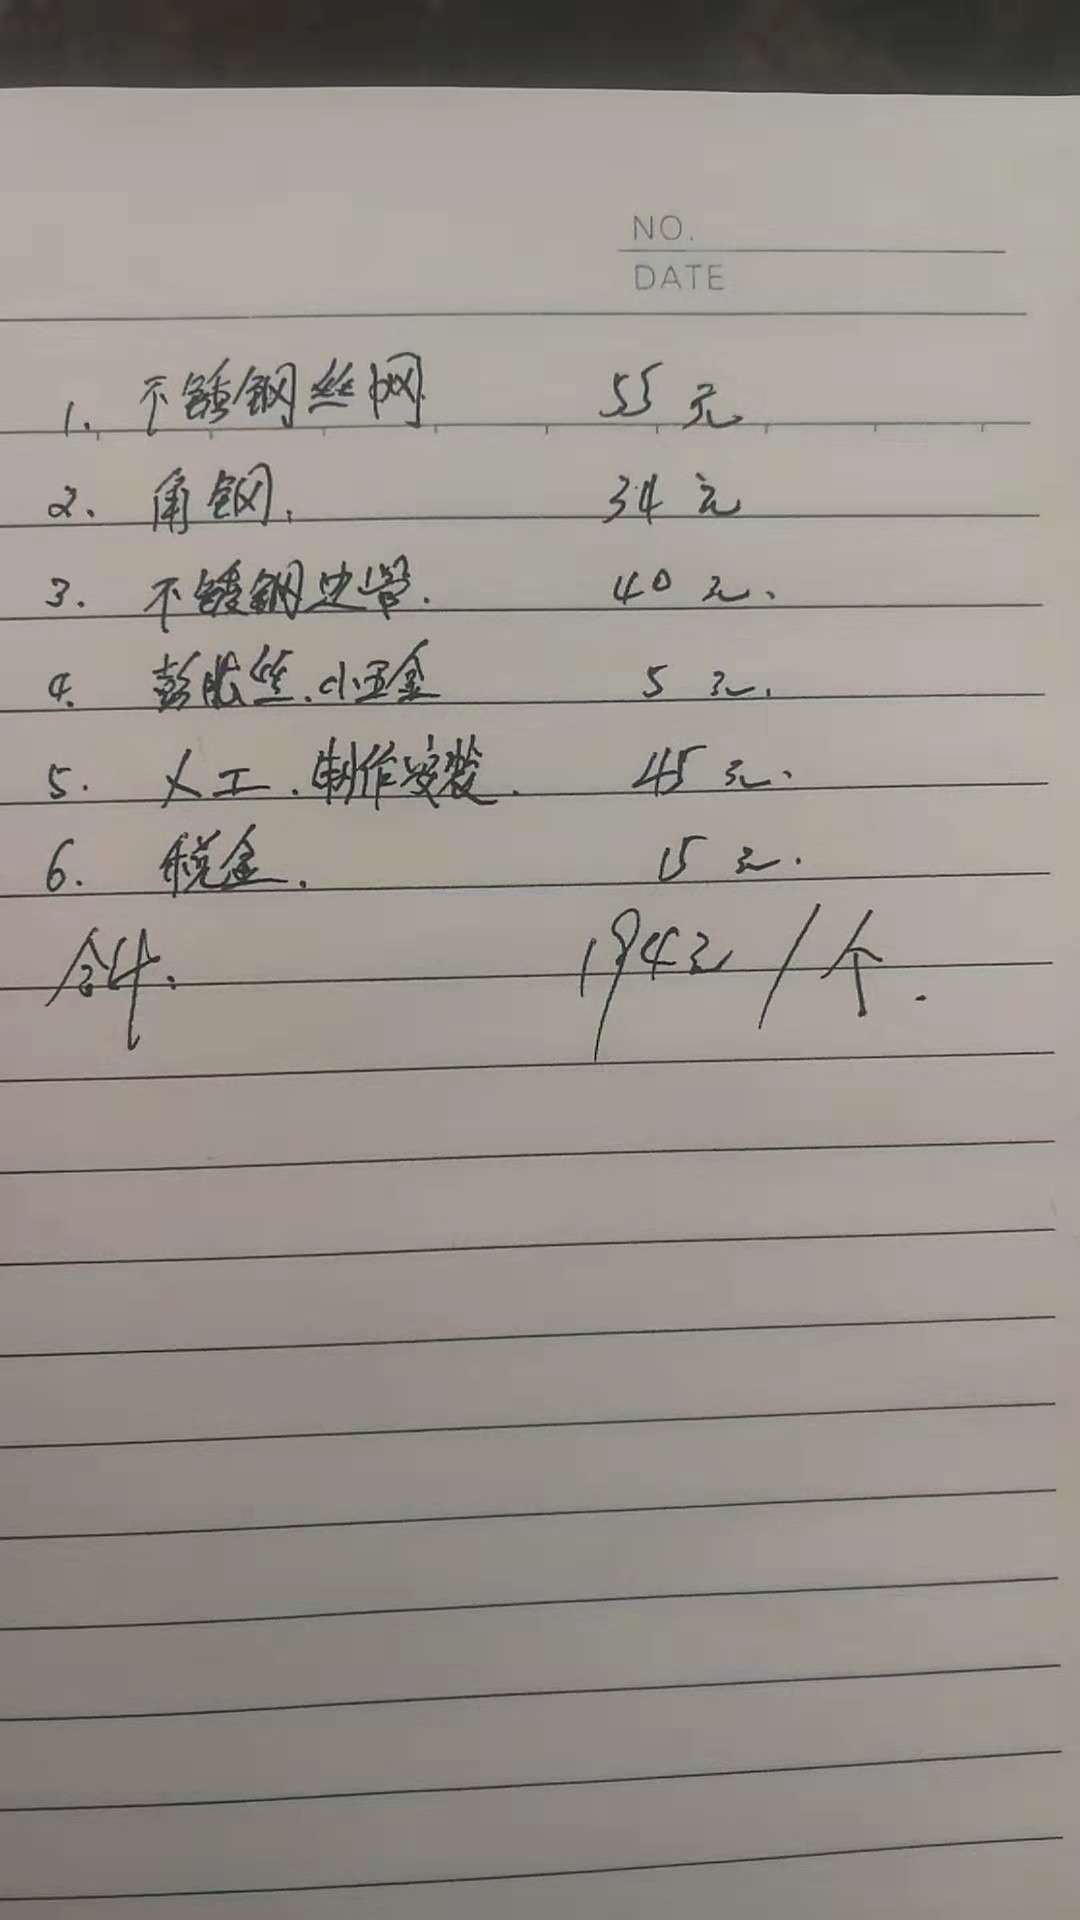 NO.
DATE
1. 不锈钢丝网 55元
2. 角钢. 34元
3. 不锈钢边管. 40元.
4. 彭胀丝.小五金 5元.
5. 人工.制作安装. 45元.
6. 税金. 15元.
合计: 194元/个.